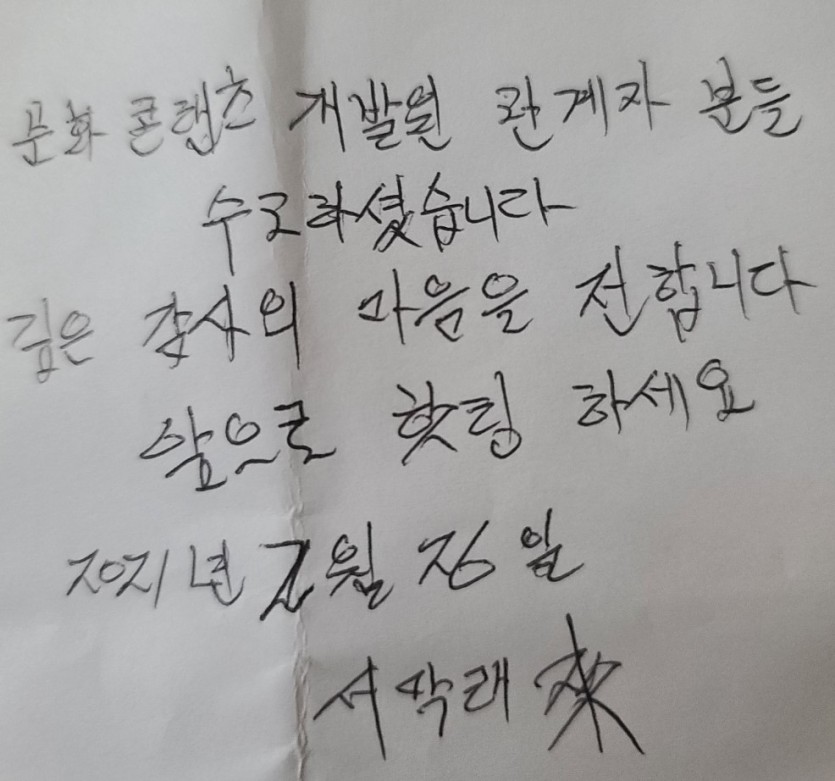 문화 콘텐츠 개발원 관계자 분들
수고하셨습니다
깊은 감사의 마음을 전합니다
앞으로 홧팅 하세요
2021년 2월 26일
서막래 來